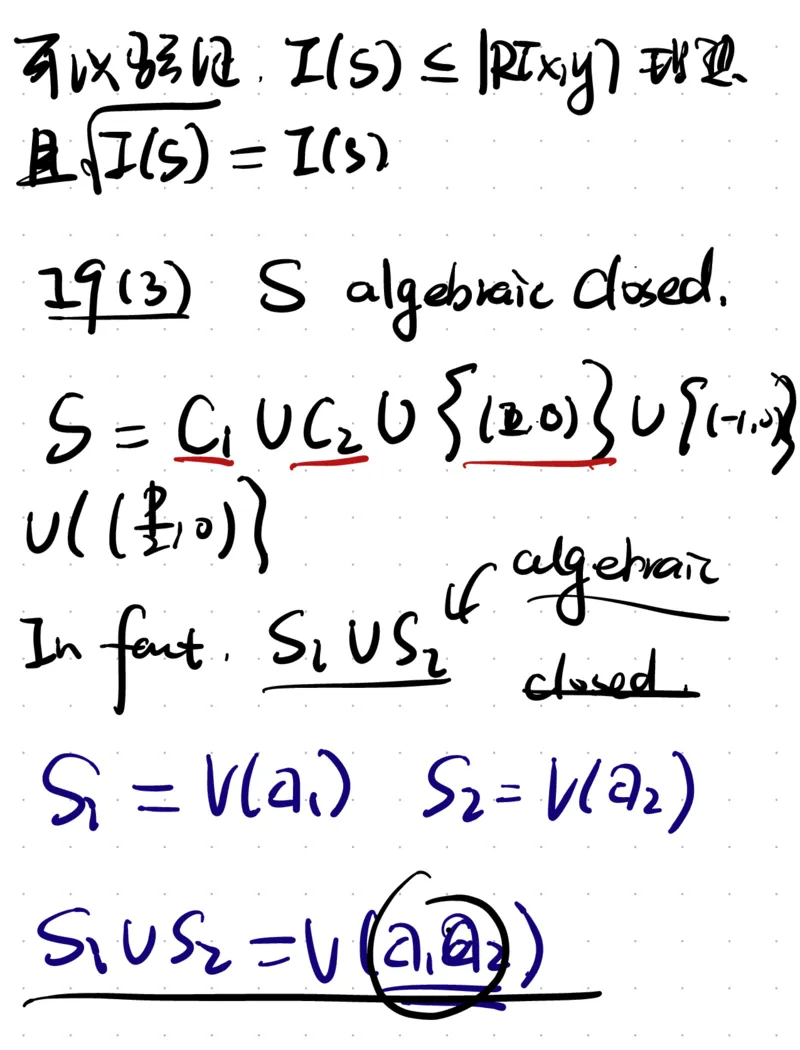 可以验证. I(S) ≤ ℝ[x,y] 理想
且 √I(S) = I(S)
Ig (3) S algebraic closed.
S = C₁ ∪ C₂ ∪ {( ,0)} ∪ {(-1,0)}
∪{( ,0)}
In fact. S₁ ∪ S₂ algebraic
closed.
S₁ = V(a₁) S₂ = V(a₂)
S₁ ∪ S₂ = V(a₁a₂)